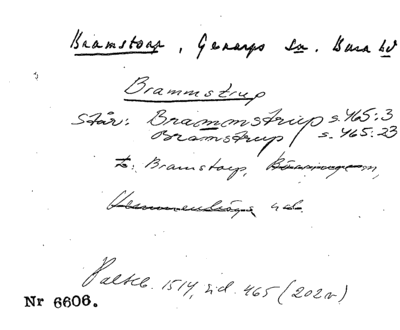 Bramstorp, Genarps sn. Bara hd
Brammstrup
står: Brammstrup s. 465:3
Bramstrup s. 465:23
t. Bramstorp,
Palteb. 1514, sid. 465 (202v)
Nr 6606.